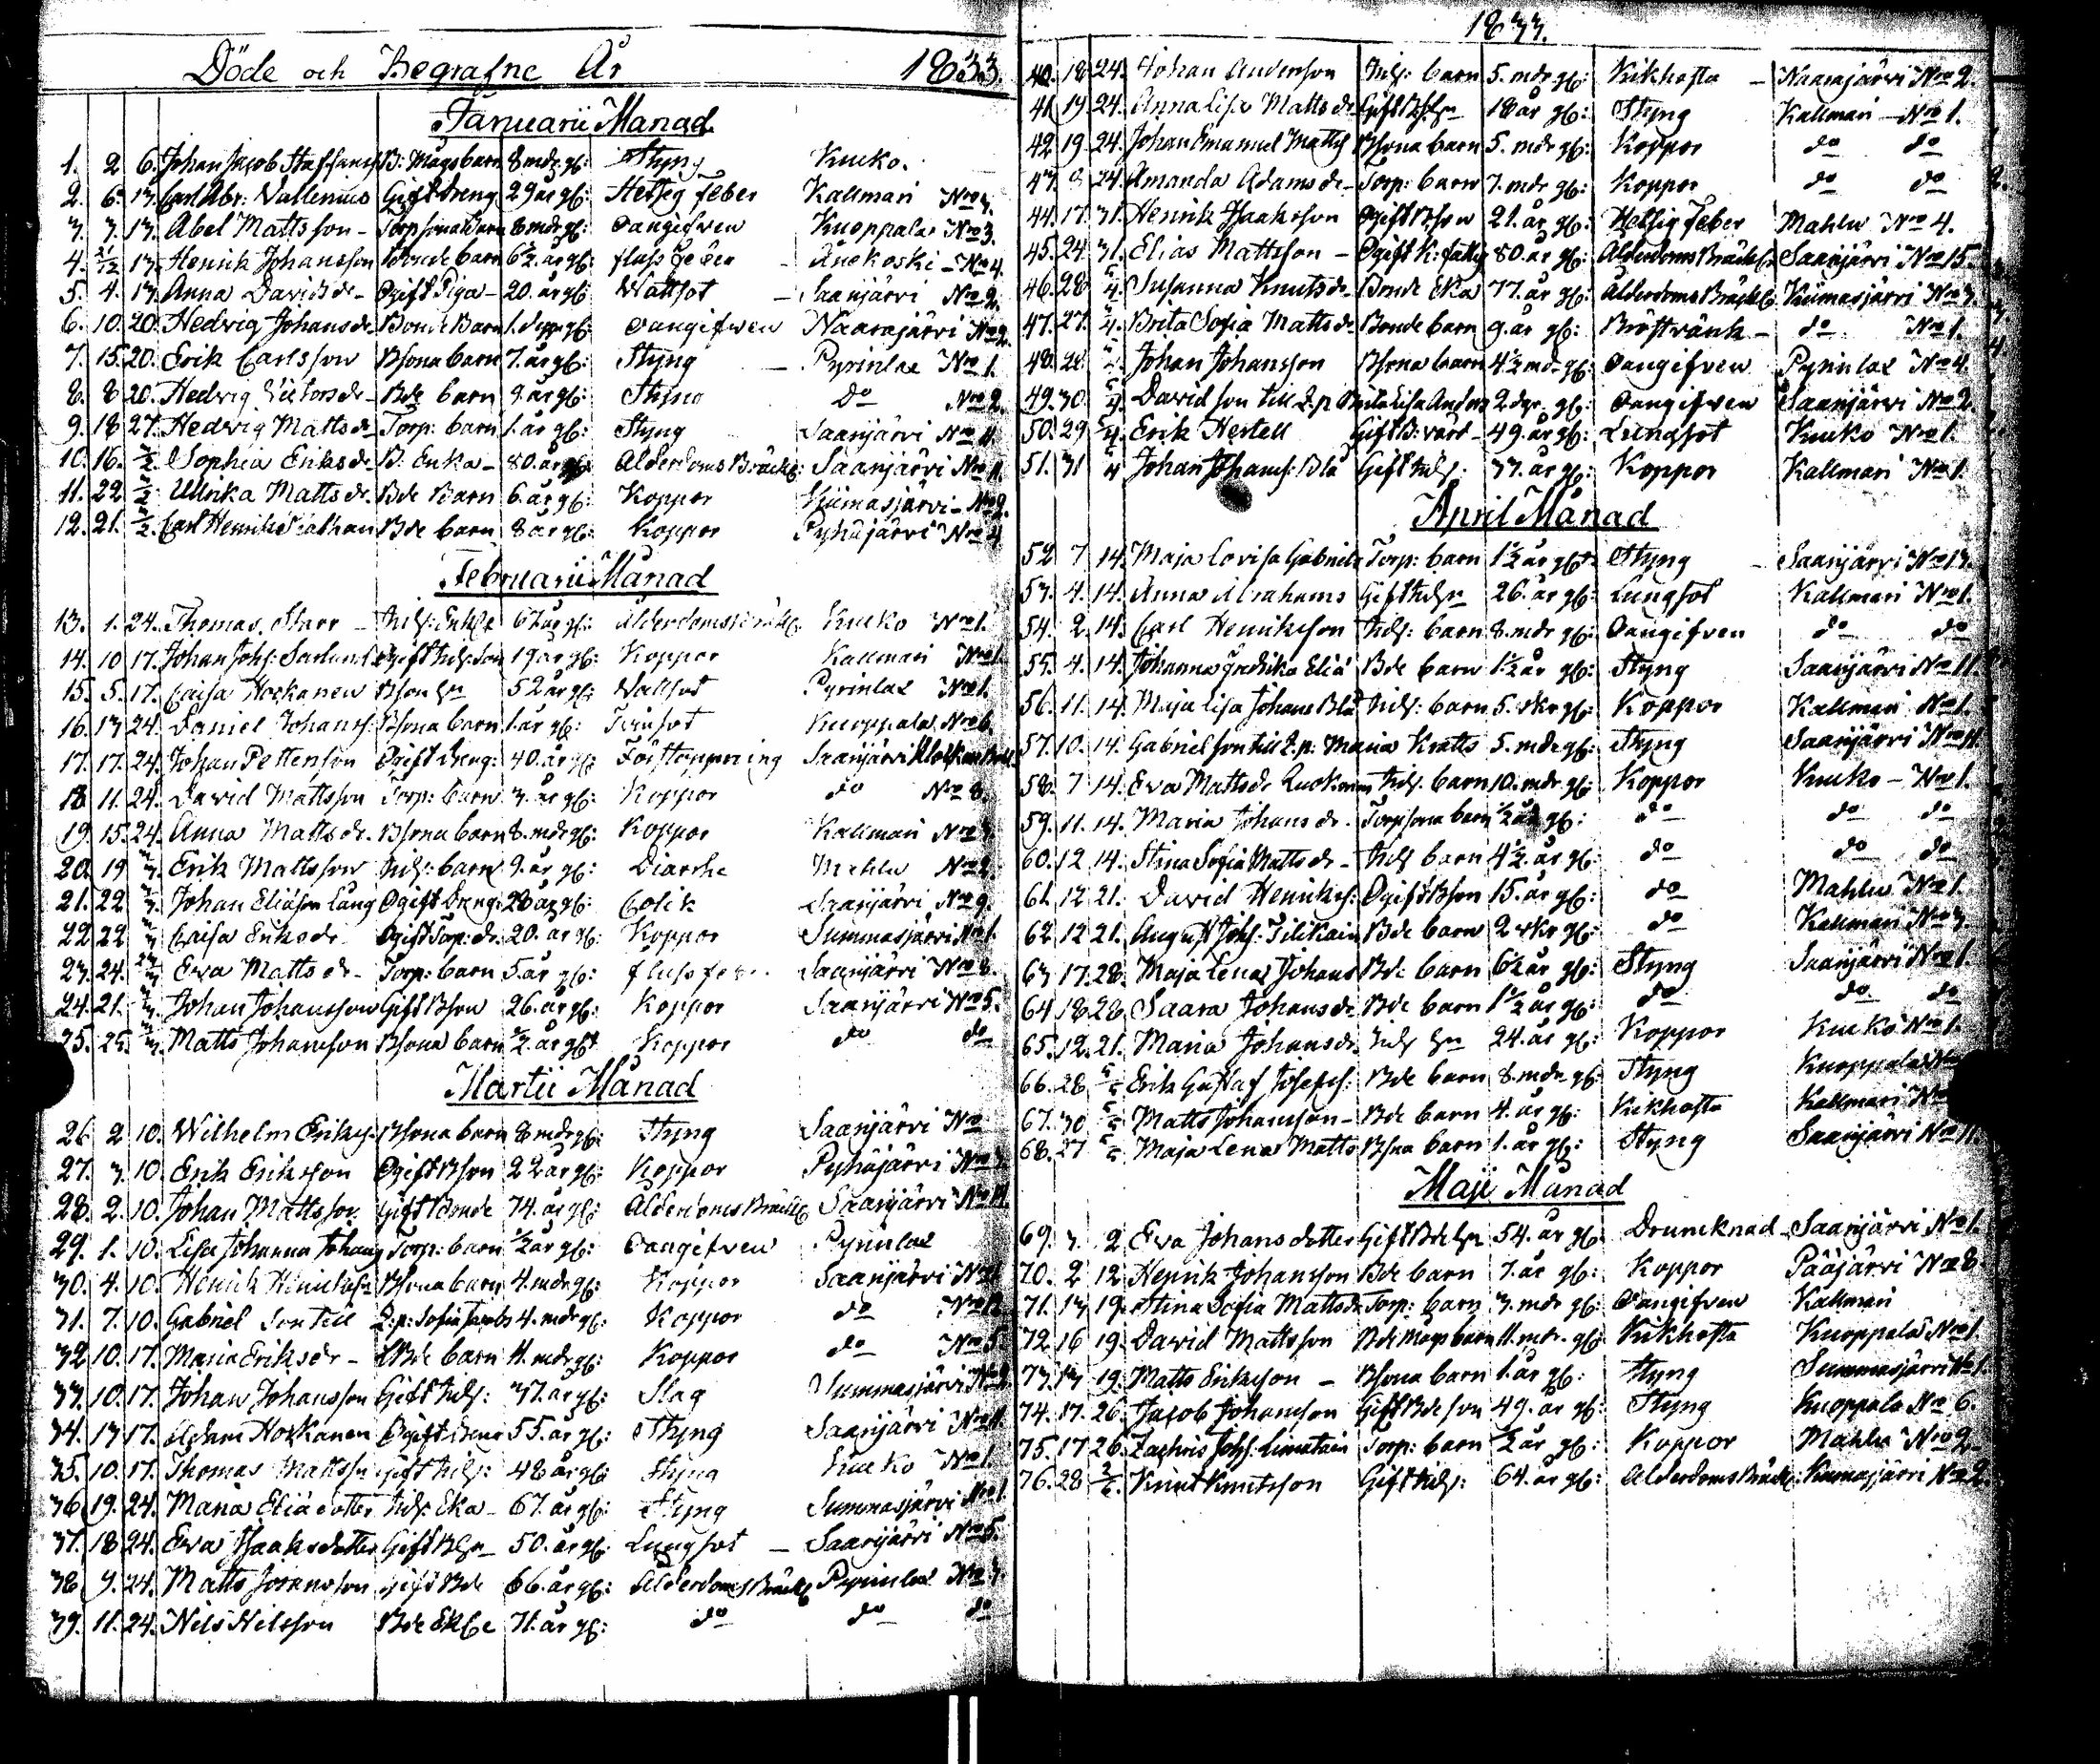 Döde och Begrafne År 1833.
Januarii Månad
1. 2 6. Johan Jacob Staffans B: Mågs barn 8 mdr gl: Styng Kuuko.
2. 6. 13. Carl Abr: Vallenius Gift dreng 29 år gl: Hetsig feber Kallmari No 3.
3. 7. 13. Abel Mattsson - Torpsona barn 8 mdr gl: Oangifven Knoppala No 3.
4. 21/12 13. Henrik Johansson Bonde barn 6½ år gl: fluss Feber - Änekoski - No 4.
5. 4. 13. Anna Davidsdr- Ogift Piga - 20. år gl: Wattsot - Saarijärvi No 2.
6. 10. 20. Hedvig Johansdr Bonde Barn 1. gl: Oangifven Naarajärvi No 2.
7. 15. 20. Erik Carlsson Bsona barn 7. år gl: Styng - Pyrinlax No 1.
8. 8 20. Hedvig Bde barn 9. år gl: Styng Do No 2.
9. 18 27. Hedvig Mattsdr Torp: barn 1. år gl: Styng Saarijärvi No 11.
10. 16. 3/2. Sophia Eriksdr B: Enka - 80. år gl: Ålderdoms Bräckl: Saarijärvi No 11.
11. 22 3/2. Ullrika Mattsdr. Bde Barn 6. år gl: Koppor Kiimasjärvi - No 2.
12. 21. 3/2. Carl Henrik Bde barn 8 år gl: Koppor Pyhäjärvi No 4
Februarii Månad
13. 1. 24. Thomas Starr - Inhs: Enkl 67 år gl: Ålderdomsbräckl Kuuko No 1.
14. 10 17. Johan Johs: Ogift Inhs: Son 19 år gl: Koppor Kallmari No 1.
15. 5. 17. Caisa Hokkanen Bson hu 52 år gl: Vattsot Pyrinlax No 1.
16. 13 24. Daniel Johans: Bsona barn 1. år gl: Tvinsot Knoppala No 6.
17. 17. 24. Johan Petterson Ogift dreng: 40. år gl: Förstoppning Saarijärvi
18 11. 24. David Mattsson Torp: barn 3. år gl: Koppor do No 8.
19. 15. 24. Anna Mattsdr. Bsona barn 8. mdr gl: Koppor Kallmari No 3.
20. 19 3/3. Erik Mattsson Inhs: barn 9. år gl: Diarrhe Mahlu No 2.
21. 22 3/3. Johan Eliäson Lång Ogift Dreng: 28 år gl: Colik Saarijärvi No 9.
22 22 3/3 Caisa Eriksdr Ogift Torp: dr: 20. år gl: Koppor Summasjärvi No 1.
23. 24. Eva Mattsdr- Torp: barn 5. år gl: fluss feber Saarijärvi No 8.
24. 21. 3/3. Johan Johansson Gift Bson 26. år gl: Koppor Saarijärvi No 5.
25. 25. 3/3. Matts Johansson Bsona barn ½. år gl: Koppor do do
Martii Månad
26 2 10. Wilhelm Eriks: Bsona barn 8 mdr gl: Styng Saarijärvi No
27. 3. 10. Erik Eriksson Ogift Bson 22 år gl: Koppor Pyhäjärvi No 3.
28. 2. 10. Johan Mattsson Gift Bonde 74. år gl: Ålderdoms Bräckl Saarijärvi No 14.
29. 1. 10. Lisa Johanna Johans Torp: barn ½ år gl: Oangifven Pyrinlax
30. 4. 10. Henrik Henriks Bsona barn 4. mdr gl: Koppor Saarijärvi No 1
31. 7. 10. Gabriel Son till Q.p: Sofia Jacobs 4. mdr gl: Koppor do No 12
32 10. 17. Maria Eriksdr - Bde barn 11. mdr gl: Koppor do No 5.
33. 10. 17. Johan Johansson Gift Inhs: 37. år gl: Slag Summasjärvi No 2
34. 13 17. Adam Hokkanen Ogift 55. år gl: Styng Saarijärvi No 11.
35. 10. 17. Thomas Mattsson Gift Inhs: 48 år gl: Styng Kuuko No 1.
36 19. 24. Maria Eliä dotter Inhs: Eka - 67. år gl: Styng Summasjärvi No 1.
37. 18 24. Eva Isaksdotter Gift Bhu - 50. år gl: Lungsot - Saarijärvi No 5.
38 9. 24. Matts Johansson Gift Bde 66. år gl: Ålderdoms Bräckl Pyrinlax No 3.
39. 11. 24. Nils Nilsson Bde Ekl 71. år gl: do do do
1833.
40. 18 24. Johan Anderson Inhs: barn 5. mdr gl: Kikhosta - Naarajärvi No 2.
41. 19. 24. Anna Lisa Mattsdr Gift Bshu 18 år gl: Styng Kallmari - No 1.
42. 19. 24. Johan Emanuel Matts Bsona barn 5. mdr gl: Koppor do do
43. 8 24. Amanda Adamsdr - Torp: barn 7. mdr gl: Koppor do do
44. 17. 31. Henrik Isaksson Ogift Bson 21. år gl: Hetsig Feber Mahlu No 4.
45. 24 31. Elias Mattsson - Ogift K: fattig 80. år gl: Ålderdoms Bräckl Saarijärvi No 15.
46. 28 5/4. Susanna Knutsdr Bonde Eka 77. år gl: Ålderdoms Bräckl Kiimasjärvi No 3.
47. 27. 5/4. Brita Sofia Mattsdr Bonde barn 9. år gl: Bröstvärk - do No 1.
48. 28 Johan Johansson Bsona barn 4½ mdr gl: Oangifven Pyrinlax No 4.
49. 30 5/4. David son till Q.p Brita Lisa Anders 2 dgr. gl: Oangifven Saarijärvi No 2.
50. 29 5/4. Erik Hertell Gift B: värd - 49. år gl: Lungsot Kuuko No 1.
51. 31 5/4 Johan Johans: Blå Gift Inhs: 37. år gl: Koppor Kallmari No 1.
April Månad
52 7 14. Maja Lovisa Gabriels Torp: barn 1½ år gl: Styng - Saarijärvi No 13.
53. 4. 14. Anna Abrahams Gift Inhs 26. år gl: Lungsot Kallmari No 1.
54. 2. 14. Carl Henriksson Inhs: barn 8. mdr gl: Oangifven do do
55. 4. 14. Johanna Fredrika Eliä Bde barn 1½ år gl: Styng Saarijärvi No 11.
56. 11. 14. Maja Lisa Johans Blå Inhs: barn 5. vkr gl: Koppor Kallmari No 1.
57. 10. 14. Gabriel son till Q.p: Maria Kratts 5. mdr gl: Styng Saarijärvi No 11.
58. 7 14. Eva Mattsdr Inhs. barn 10. mdr gl: Koppor Kuuko - No 1.
59. 11. 14. Maria Johansdr. Torpsona barn ½ år gl: do do do
60. 12 14. Stina Sofia Mattsdr - Inhs barn 4½. år gl: do do do
61. 12 21. David Henriks: Ogift Bson 15. år gl: do Mahlu No 1.
62. 12 21. August Johs: Bde barn 2 vkr gl: do Kallmari No 3.
63 17. 28. Maja Lena Johans Bde barn 6½ år gl: Styng Saarijärvi No 1.
64 18 28. Saara Johansdr Bde barn 1½ år gl: do do do
65. 12. 21. Maria Johansdr. Inhs hu 24. år gl: Koppor Kuuko No 1.
66. 28 5/5 Erik Gustaf Josefs: Bde barn 8. mdr gl: Styng Knoppala No
67. 30 5/5 Matts Johansson - Bde barn 4. år gl: Kikhosta Kallmari No
68. 27 5/5 Maja Lena Matts Bsna barn 1. år gl: Styng Saarijärvi No 11.
Maji Månad
69. 3. 2 Eva Johansdotter Gift Bde hu 54. år gl: Druncknad - Saarijärvi No 1.
70. 2 12 Henrik Johansson Bde barn 7. år gl: Koppor Pääjärvi No 8
71. 13 19. Stina Sofia Mattsdr Torp: barn 3. mdr gl: Oangifven Kallmari
72 16 19. David Mattsson Bde Mågs barn 11. mdr. gl: Kikhosta Knoppala No 1.
73. 13 19. Matts Eriksson - Bsona barn 1. år gl: Styng Summasjärvi No 1.
74. 17. 26. Jacob Johansson Gift Bde son 49. år gl: Styng Knoppala No 6.
75. 17 26. Zachris Johs: Torp: barn ½ år gl: Koppor Mahlu No 2
76. 28 2/6. Knut Knutsson Gift Inhs: 64. år gl: Ålderdoms Bräckl: Kiimasjärvi No 2.